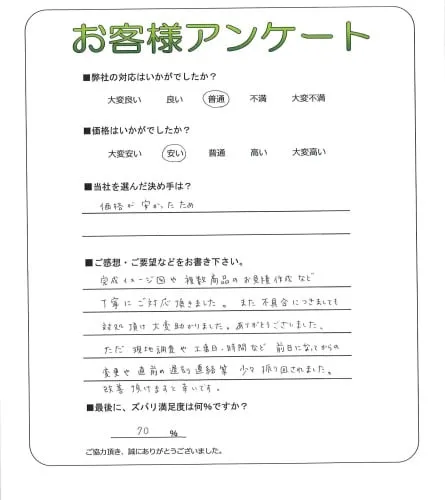 お客様アンケート
■弊社の対応はいかがでしたか?
大変良い 良い 普通 不満 大変不満
■価格はいかがでしたか?
大変安い 安い 普通 高い 大変高い
■当社を選んだ決め手は?
価格が安かったため
■ご感想・ご要望などをお書き下さい。
完成イメージ図や複数商品のお見積作成など
丁寧にご対応頂きました。また不具合につきましても
対処頂け大変助かりました。ありがとうございました。
ただ現地調査や工事日・時間など前日になってからの
変更や直前の遅刻連絡等少々振り回されました。
改善頂けますと幸いです。
■最後に、ズバリ満足度は何%ですか?
70 %
ご協力頂き、誠にありがとうございました。